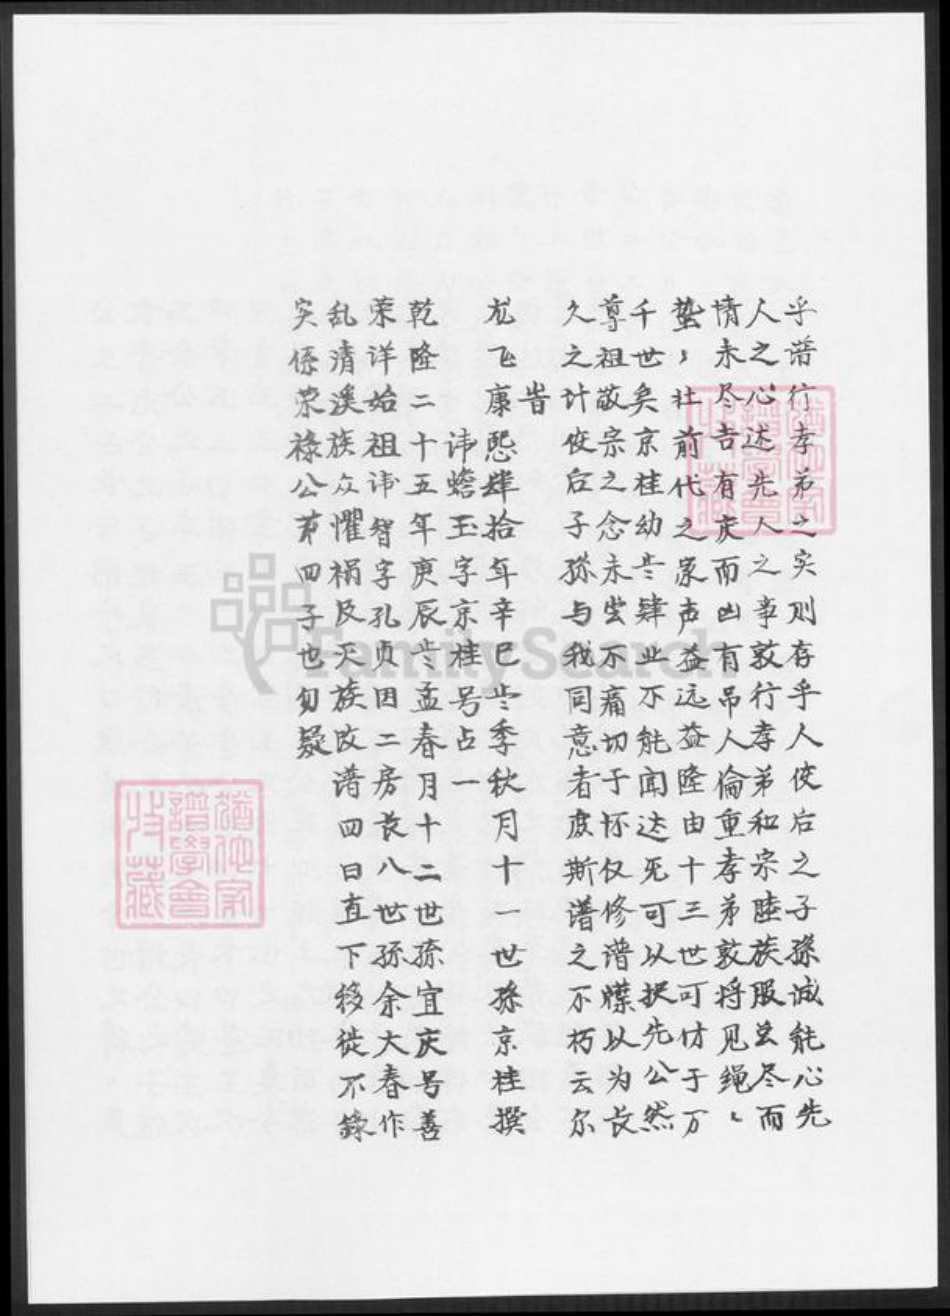 乎谱行孝弟之实则存乎人使后之子孫诚能心先
人之心达先人之事敦行孝弟和宗睦族服虽尽而
情未尽吉有庆而凶有吊人倫重孝弟敦将见绳〻
蛰〻壮前代之家声益远益隆由十三世可付于万
千世矣京桂幼岁肆业不能闻达无可以抚先公然
尊祖敬宗之念未尝不痛切于怀仅修谱牒以为长
久之计使后子孫与我同意者庶斯谱之不朽云尔
旹
龙飞康熙肆拾年辛巳岁季秋月十一世孫京桂撰
讳蟾玉字京桂号占一
乾隆二十五年庚辰岁孟春月十二世孫宜庆号善
荣详始祖讳智字孔贞因二房长八世孫余大春作
乱清溪族众懼祸及灭族改谱四日直下移徙不錄
实係荣祿公第四子也勿疑
猶他家譜學會收藏
猶他家譜學會收藏
FamilySearch